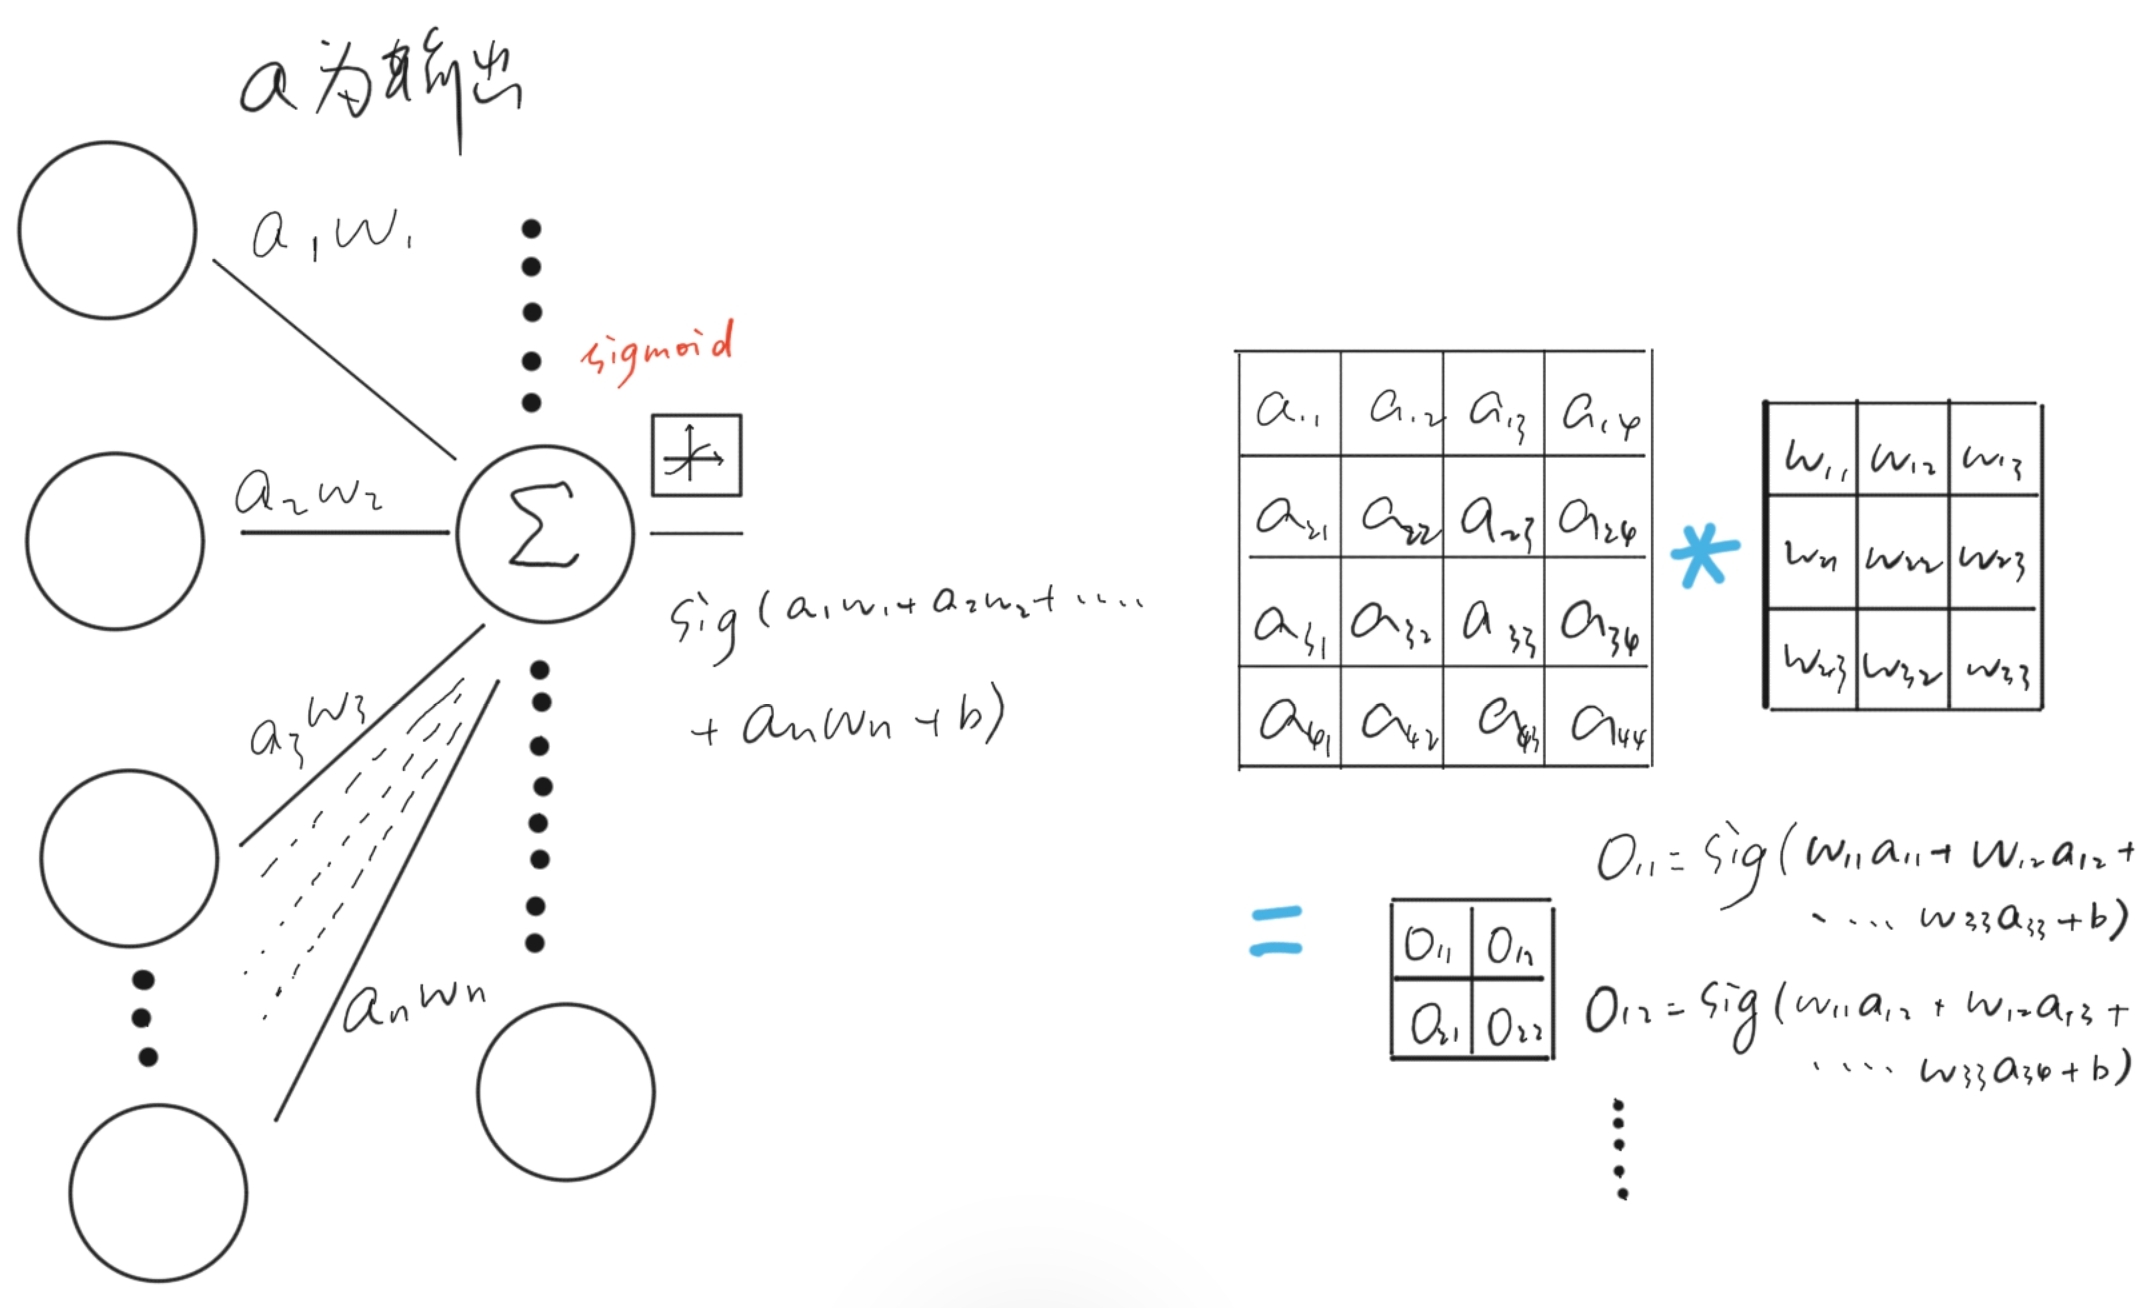 a为输出
a₁w₁
sigmoid
a₂w₂
Σ
sig(a₁w₁+a₂w₂+....
+anwn+b)
a₃w₃
anwn
a₁₁ a₁₂ a₁₃ a₁₄
a₂₁ a₂₂ a₂₃ a₂₄
a₃₁ a₃₂ a₃₃ a₃₄
a₄₁ a₄₂ a₄₃ a₄₄
*
w₁₁ w₁₂ w₁₃
w₂₁ w₂₂ w₂₃
w₂₃ w₃₂ w₃₃
=
O₁₁ O₁₂
O₂₁ O₂₂
O₁₁=sig(w₁₁a₁₁+w₁₂a₁₂+
....w₃₃a₃₃+b)
O₁₂=sig(w₁₁a₁₂+w₁₂a₁₃+
....w₃₃a₃₄+b)